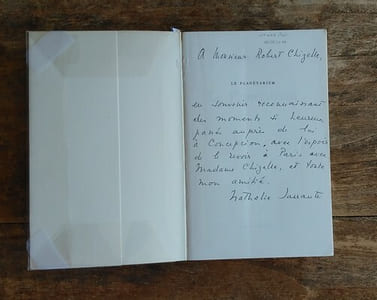 A Monsieur Robert Chizelle,
LE PLANÉTARIUM
en souvenir reconnaissant
des moments si heureux
passés auprès de lui
à Conception, avec l'espoir
de le revoir à Paris avec
Madame Chizelle, et toute
mon amitié.
Nathalie Sarraute